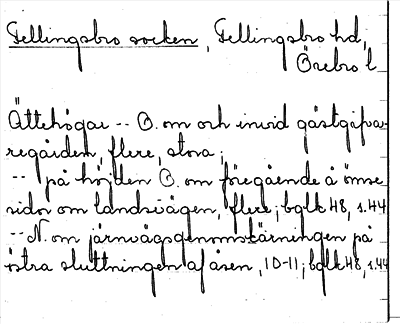 Fellingsbro socken, Fellingsbro hd,
Örebro l
Ättehögar -- Ö. om och invid gästgifva-
regården, flere, stora;
-- på höjden Ö. om föregående å ömse
sidor om landsvägen, flere; bglk 48, s.44
-- N. om järnvägsgenomskärningen på
östra sluttningen af åsen, 10-11; bglk 48, s.44